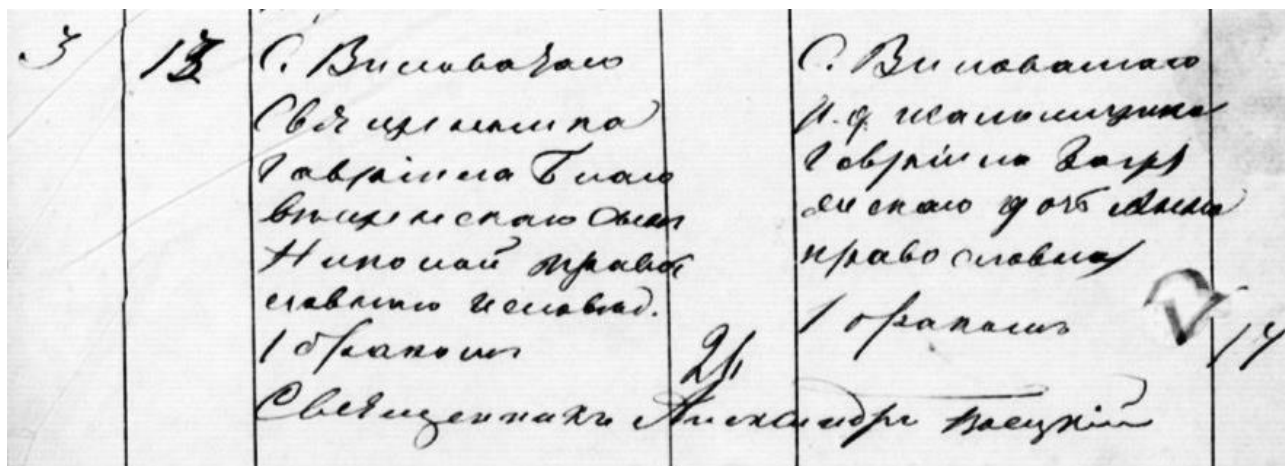 3
13
С. Виловатаго
Священника
Гавріила Благо
вещенскаго сын
Николай правос
лавнаго исповѣд.
1 бракомъ
21
С. Виловатаго
и. д. псаломщика
Гавріила
скаго дочь Анна
православна
1 бракомъ
14
Священникъ Александръ